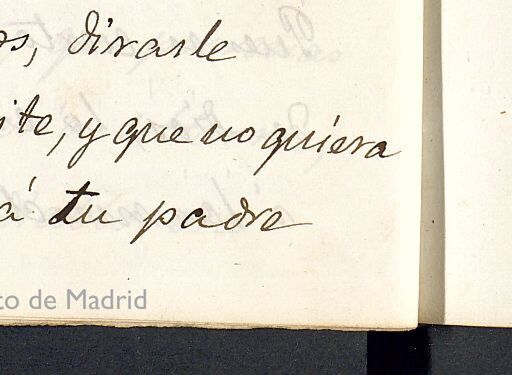 os, dirasle
ite, y que no quiera
á tu padre
to de Madrid